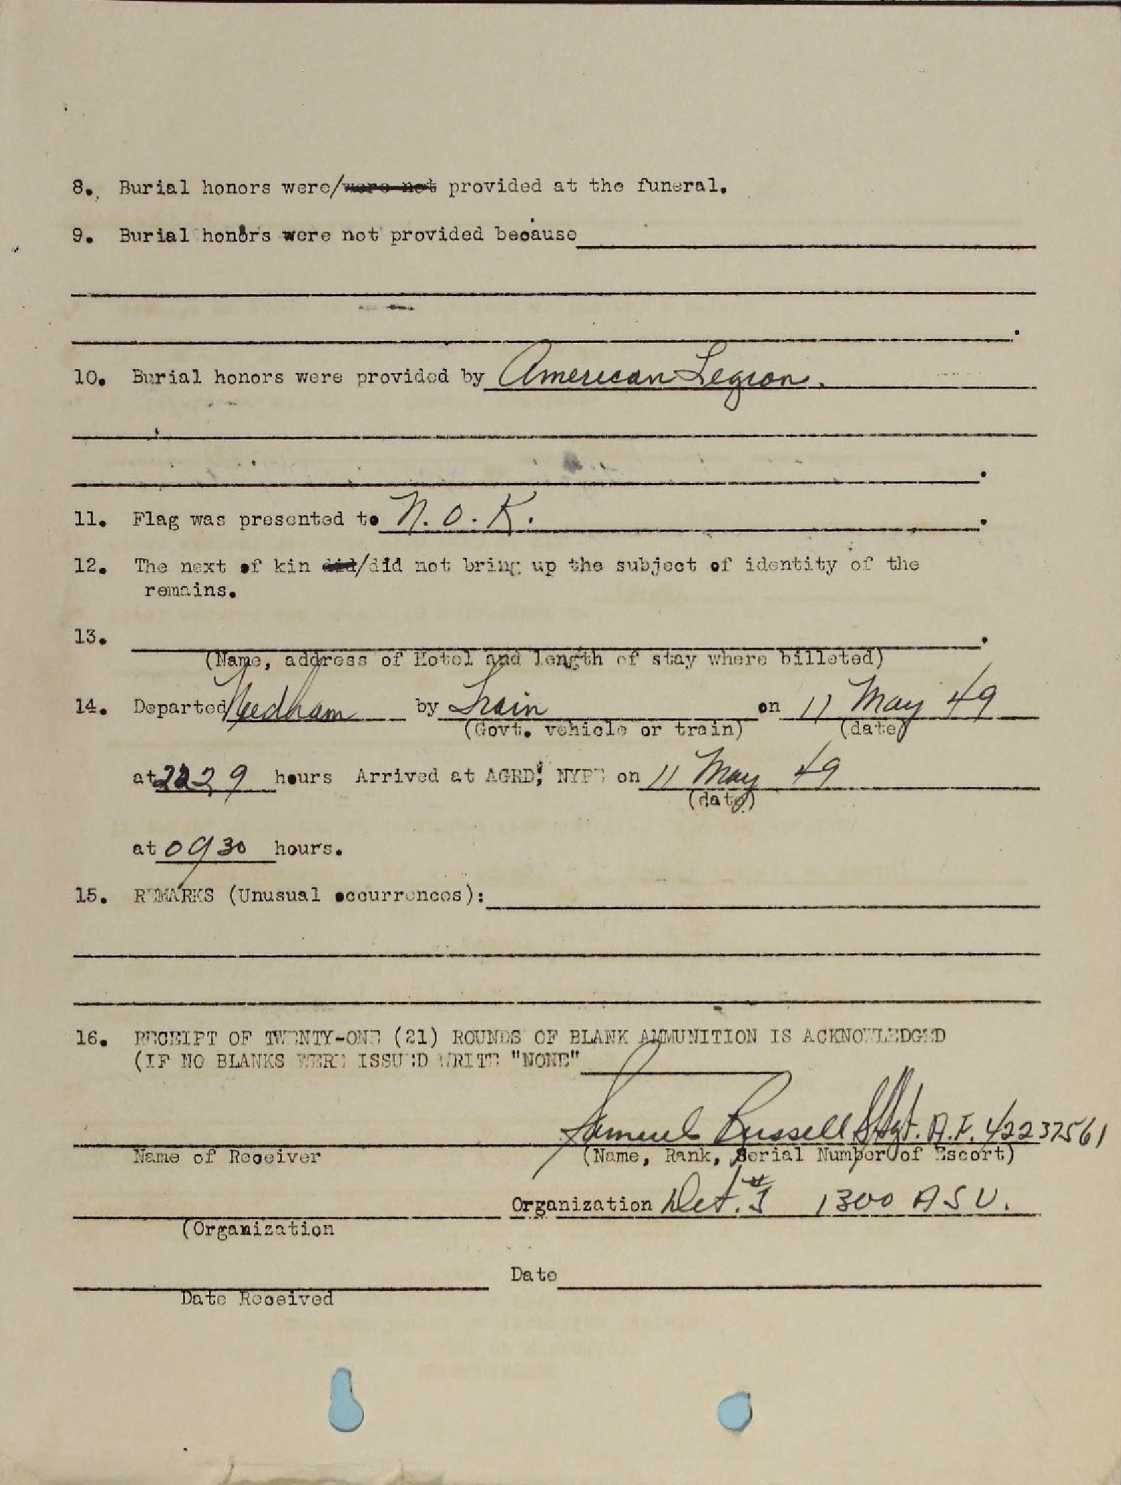 8. Burial honors were/were not provided at the funeral.
9. Burial honors were not provided because
10. Burial honors were provided by American Legion.
11. Flag was presented to N.O.K.
12. The next of kin did/did not bring up the subject of identity of the
remains.
13.
(Name, address of Hotel and length of stay where billeted)
14. Departed Needham by Train on 11 May 49
(Govt. vehicle or train) (date)
at 2229 hours Arrived at AGRD, NYPE on 11 May 49
(date)
at 0930 hours.
15. REMARKS (Unusual occurrences):
16. RECEIPT OF TWENTY-ONE (21) ROUNDS OF BLANK AMMUNITION IS ACKNOWLEDGED
(IF NO BLANKS WERE ISSUED WRITE "NONE"
Samuel Russell S/Sgt. A.F. 42237561
Name of Receiver (Name, Rank, Serial Number of Escort)
Organization Det. # 1300 ASU.
(Organization
Date
Date Received